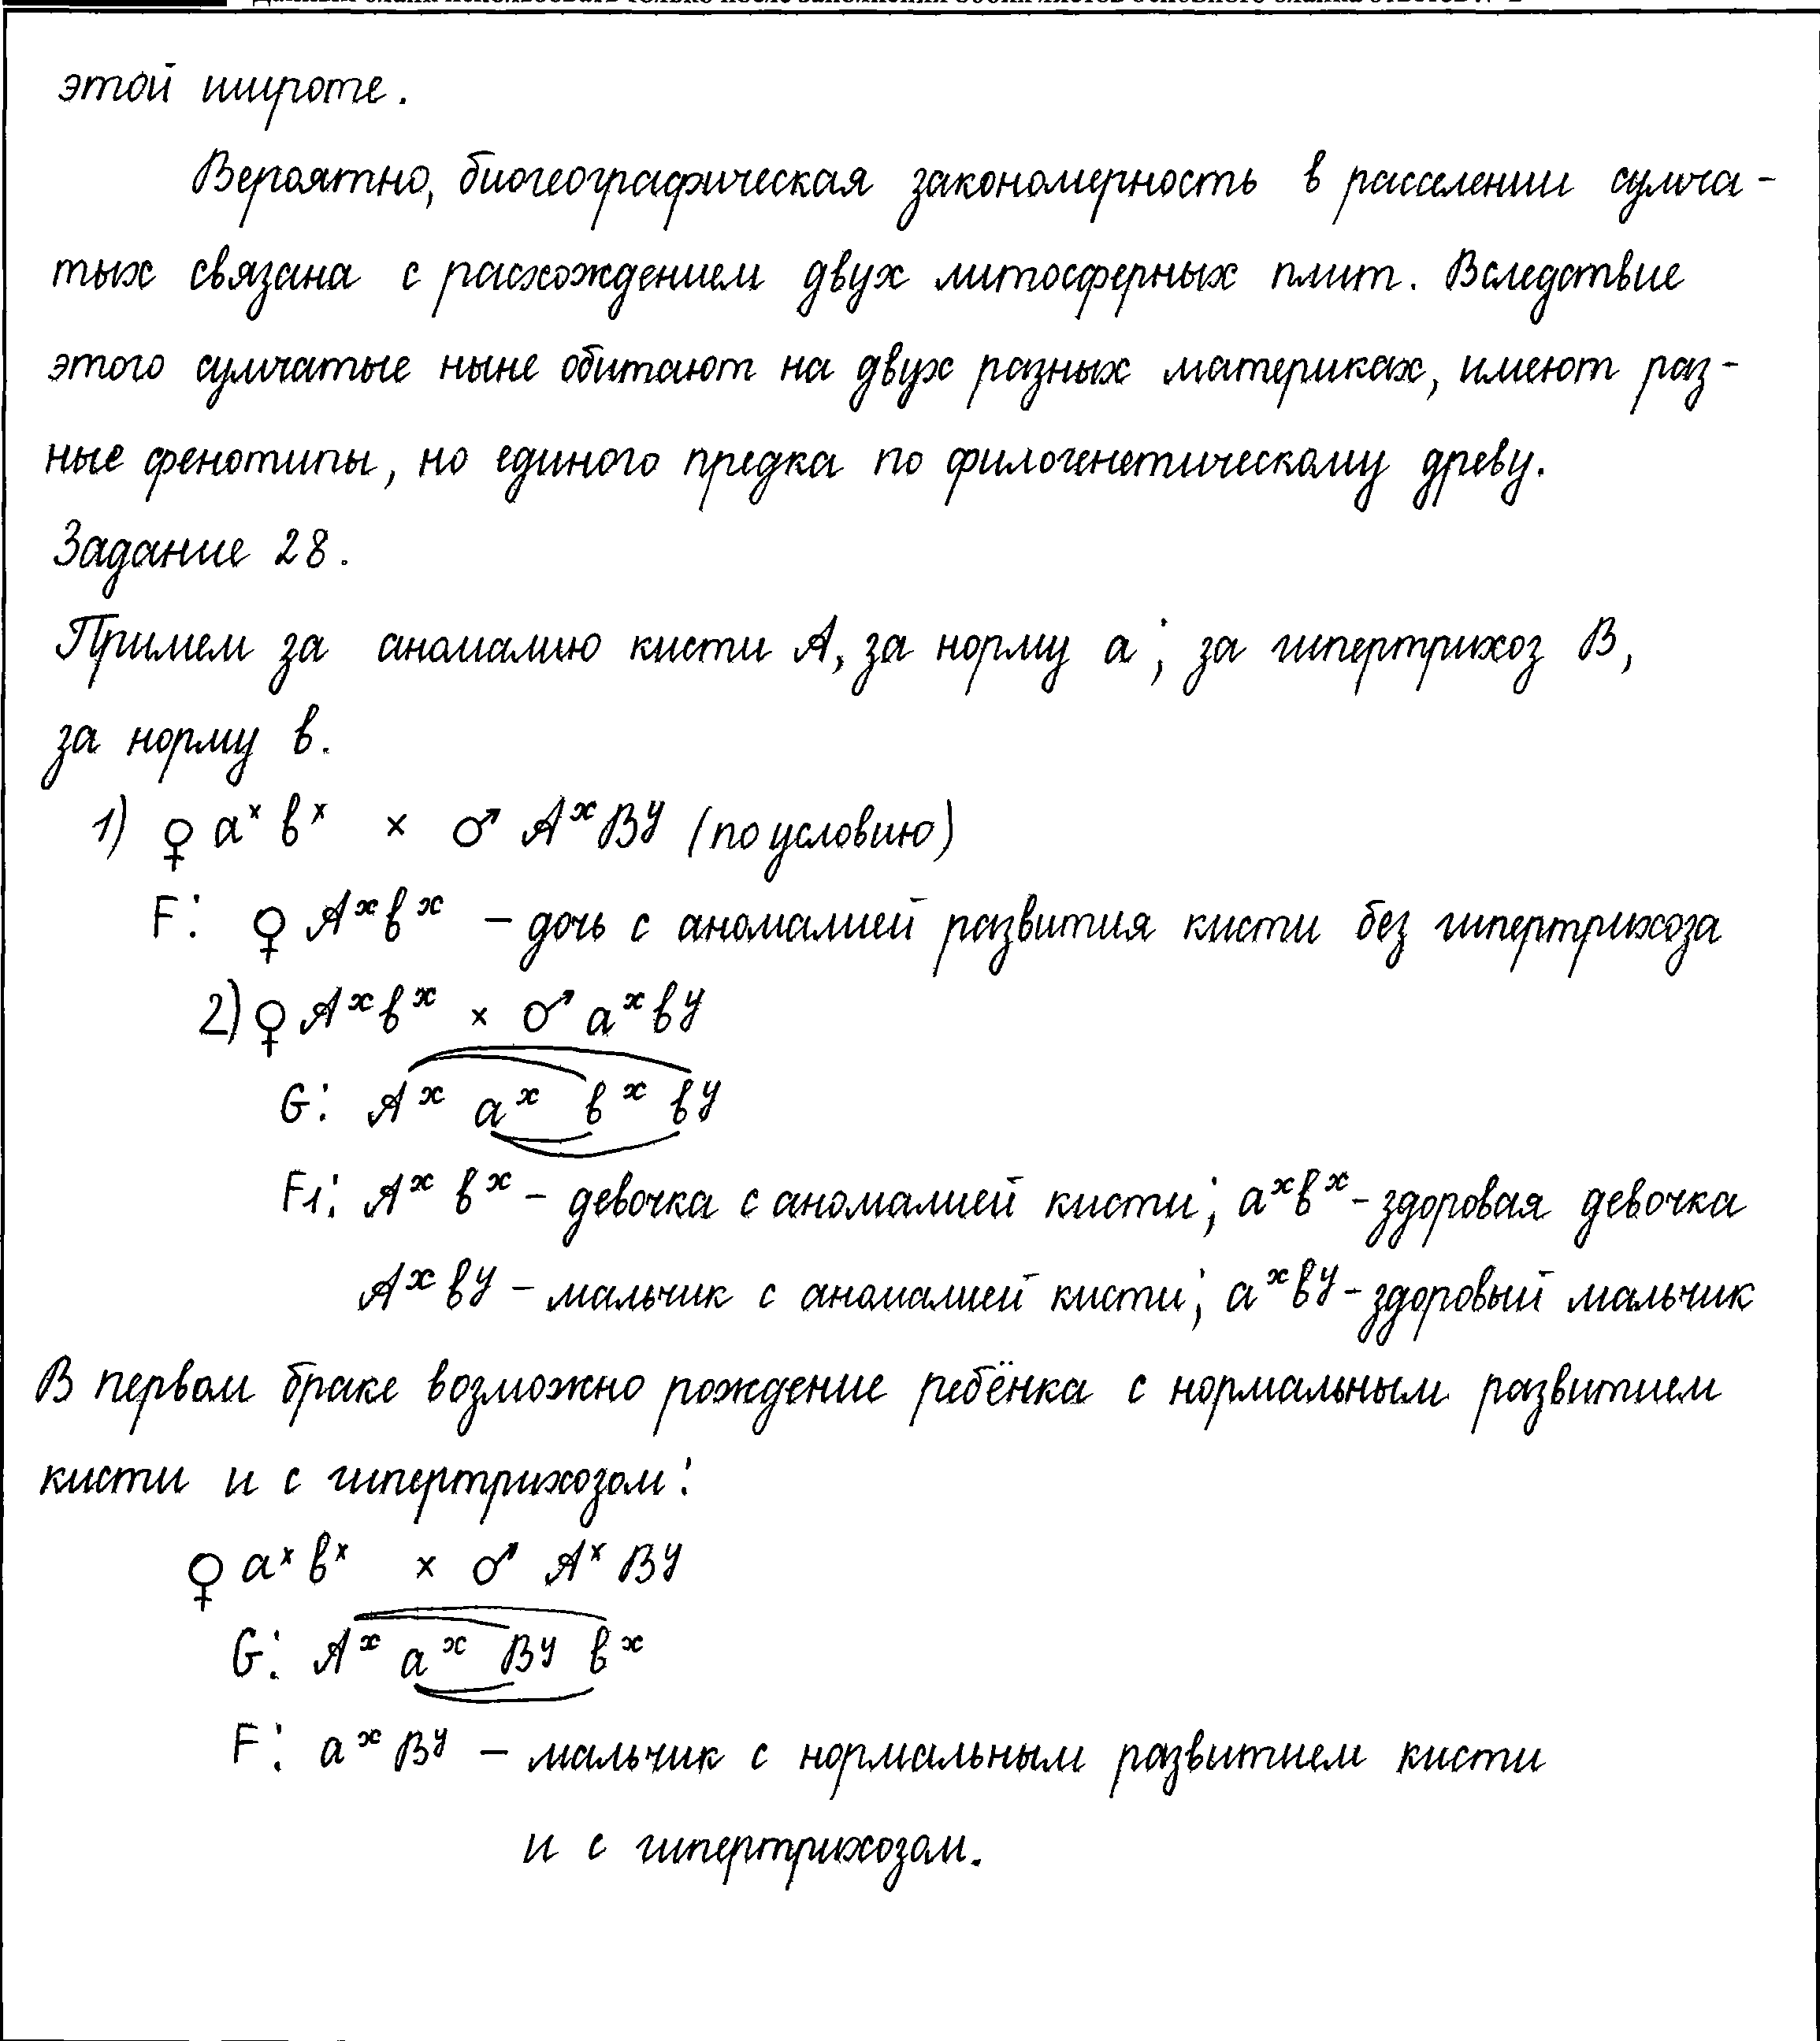 этой широте.
Вероятно, биогеографическая закономерность в расселении сумча-
тых связана с расхождением двух литосферных плит. Вследствие
этого сумчатые ныне обитают на двух разных материках, имеют раз-
ные фенотипы, но единого предка по филогенетическому древу.
Задание 28.
Примем за аномалию кисти А, за норму а; за гипертрихоз В,
за норму в.
1) ♀ aˣ вˣ × ♂ Aˣ Bʸ (по условию)
F: ♀ Aˣ вˣ – дочь с аномалией развития кисти без гипертрихоза
2) ♀ Aˣ вˣ × ♂ aˣ вʸ
G: Aˣ aˣ вˣ вʸ
F1: Aˣ вˣ – девочка с аномалией кисти; aˣ вˣ – здоровая девочка
Aˣ вʸ – мальчик с аномалией кисти; aˣ вʸ – здоровый мальчик
В первом браке возможно рождение ребёнка с нормальным развитием
кисти и с гипертрихозом:
♀ aˣ вˣ × ♂ Aˣ Bʸ
G: Aˣ aˣ Bʸ вˣ
F: aˣ Bʸ – мальчик с нормальным развитием кисти
и с гипертрихозом.